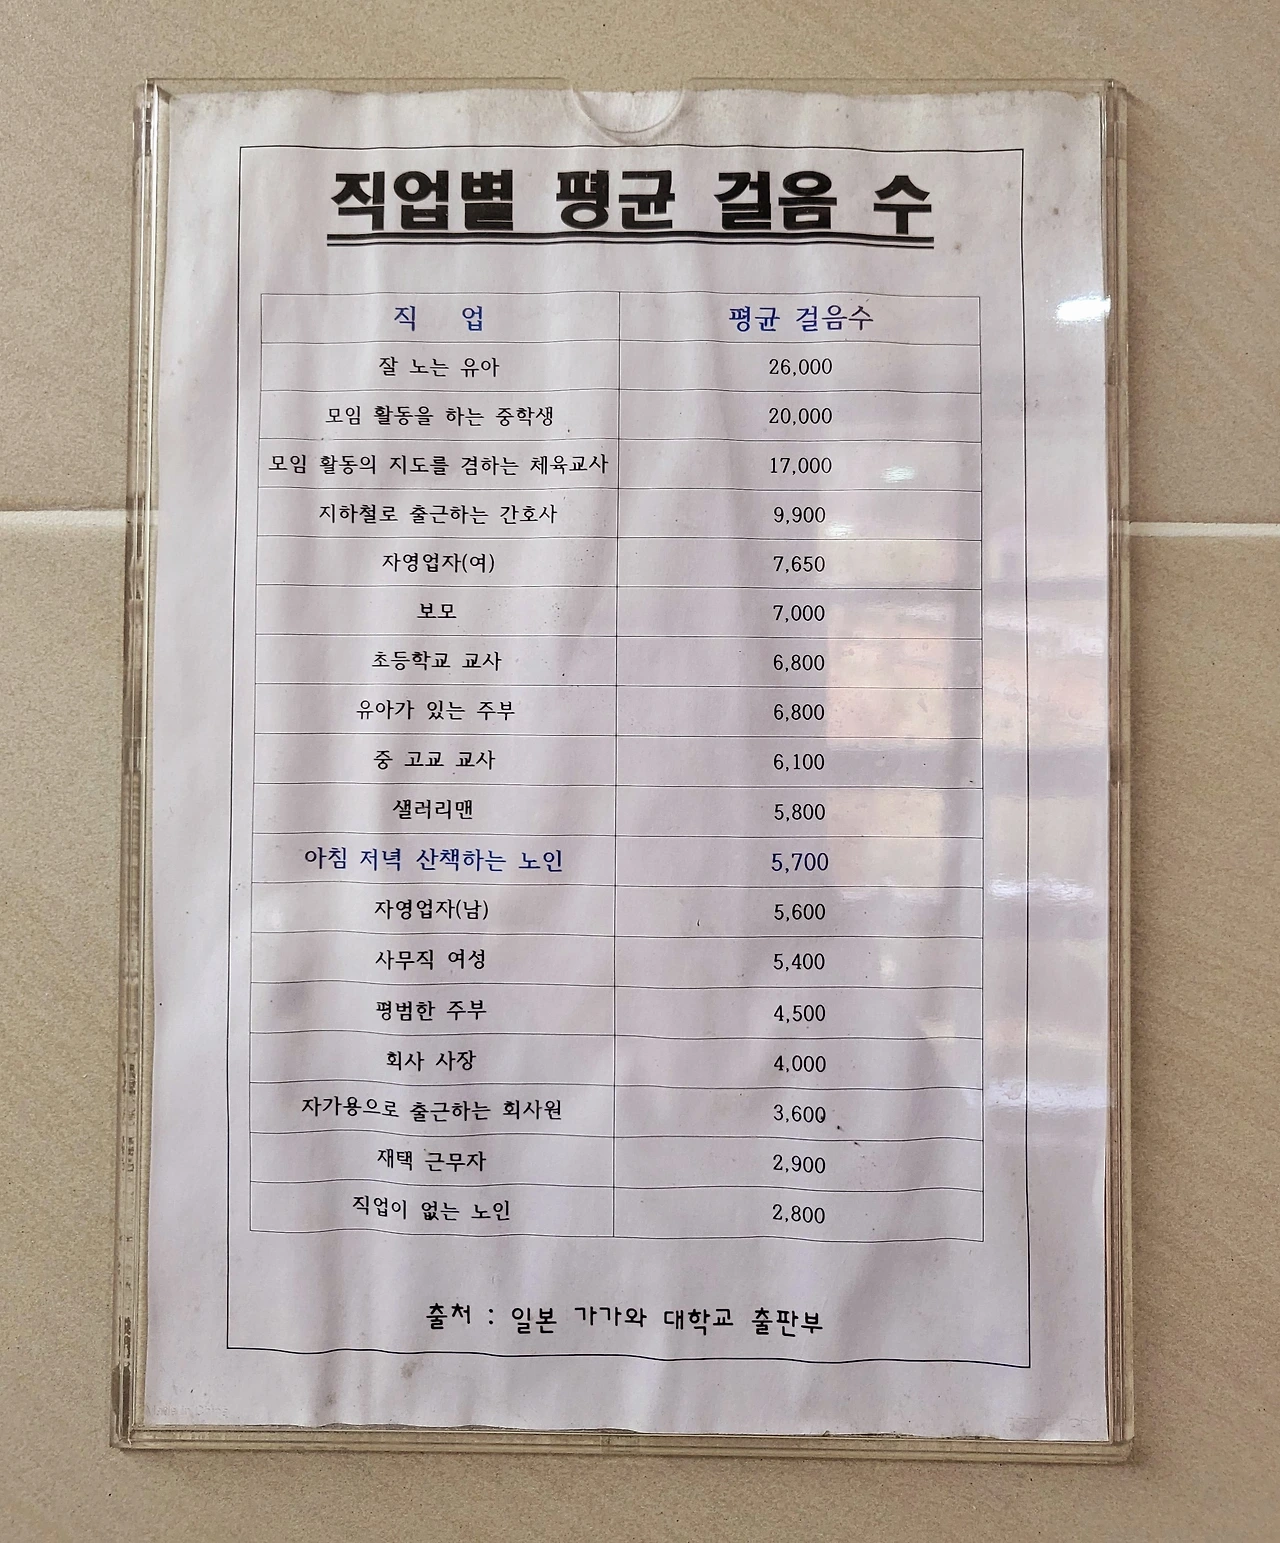 직업별 평균 걸음 수
직 업 평균 걸음수
잘 노는 유아 26,000
모임 활동을 하는 중학생 20,000
모임 활동의 지도를 겸하는 체육교사 17,000
지하철로 출근하는 간호사 9,900
자영업자(여) 7,650
보모 7,000
초등학교 교사 6,800
유아가 있는 주부 6,800
중 고교 교사 6,100
샐러리맨 5,800
아침 저녁 산책하는 노인 5,700
자영업자(남) 5,600
사무직 여성 5,400
평범한 주부 4,500
회사 사장 4,000
자가용으로 출근하는 회사원 3,600
재택 근무자 2,900
직업이 없는 노인 2,800
출처 : 일본 가가와 대학교 출판부
Made in China